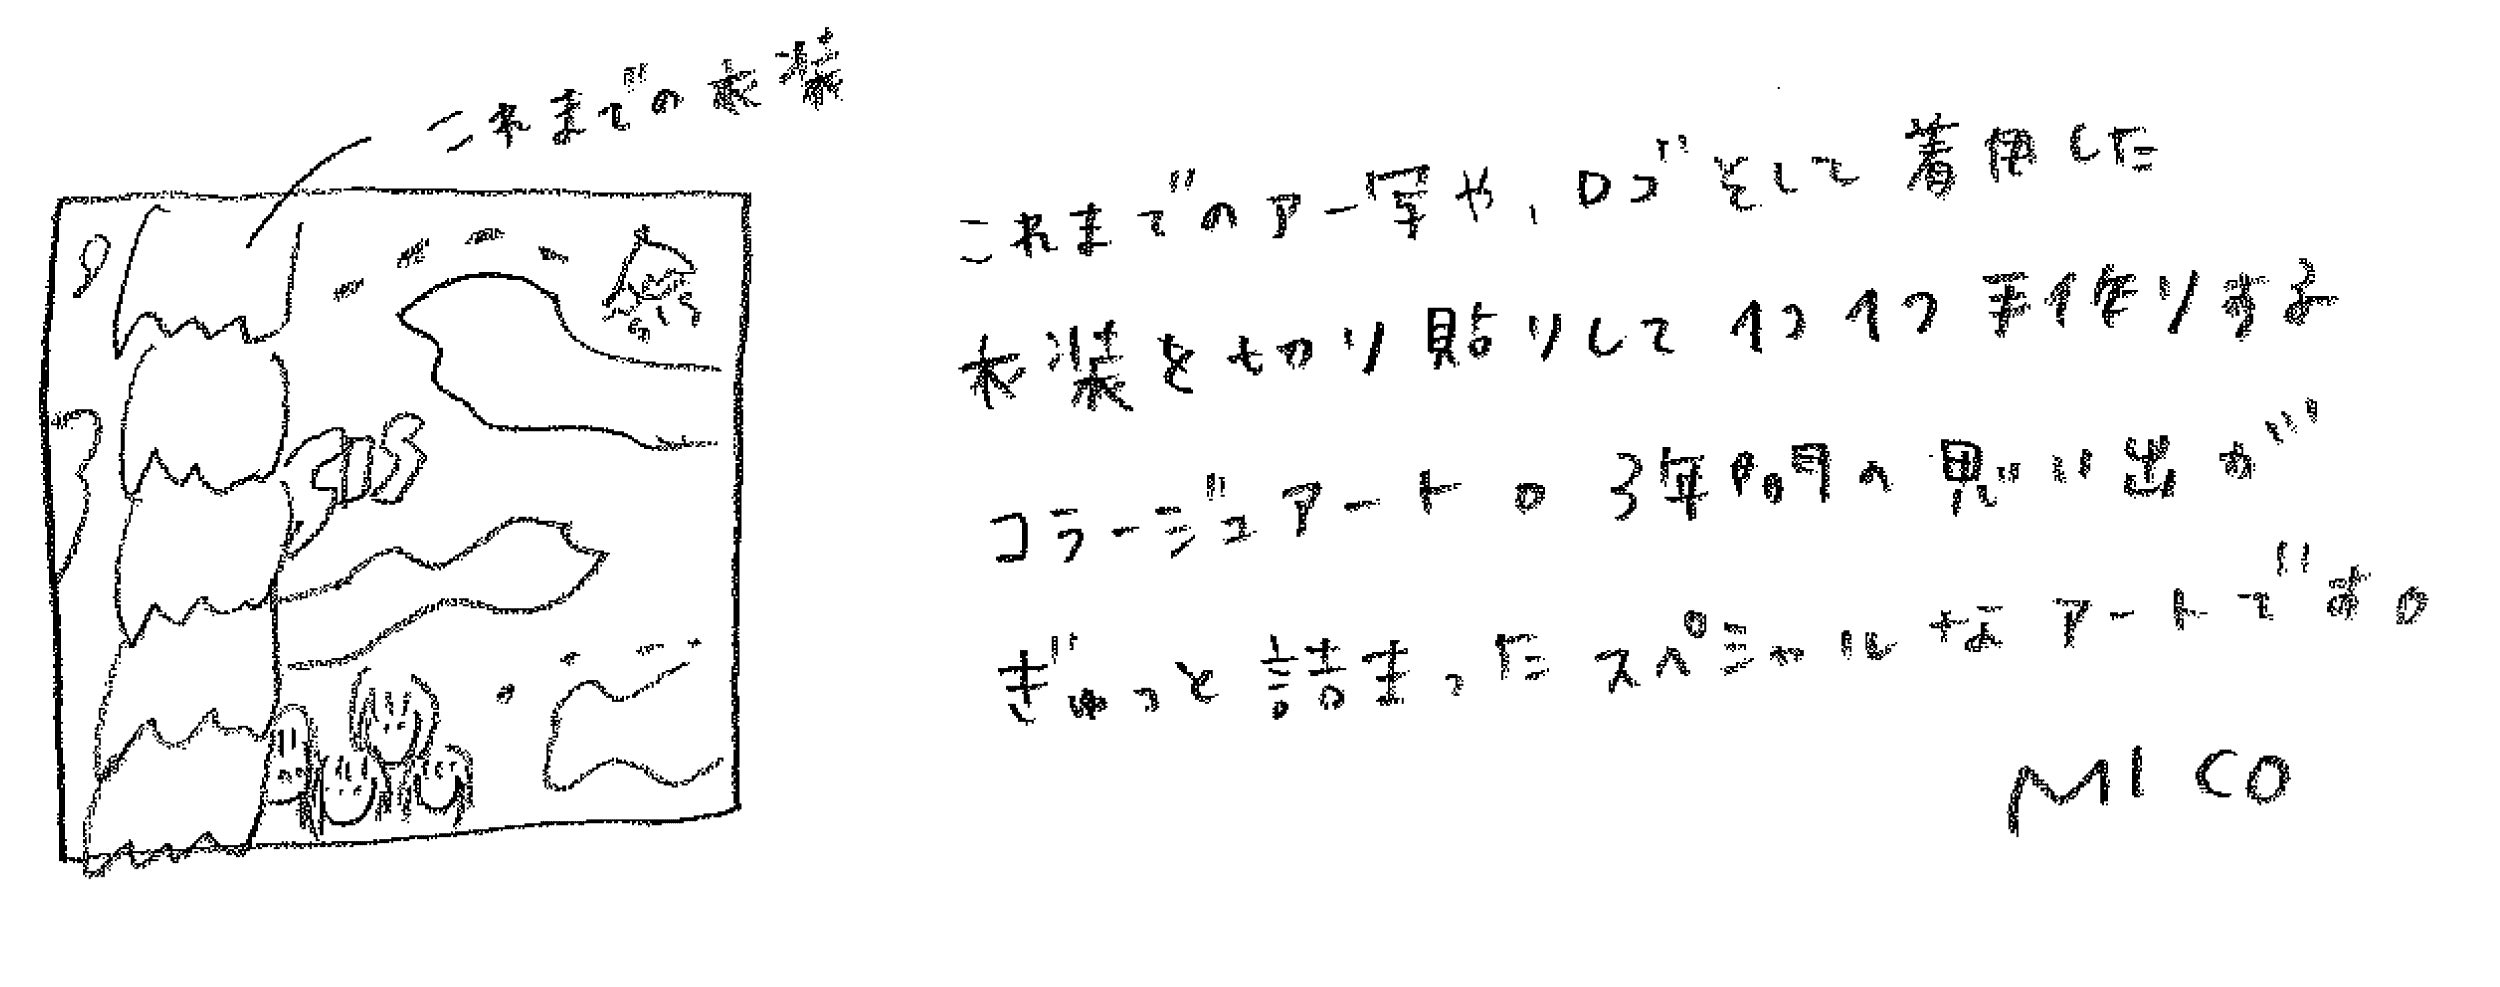 これまでの衣装
これまでのアー写や、ロゴそして着用した
衣装を切り貼りしてイコイコ手作りする
コラージュアート。3年間の思い出が
ぎゅっと詰まったスペシャルなアートです。
MICO